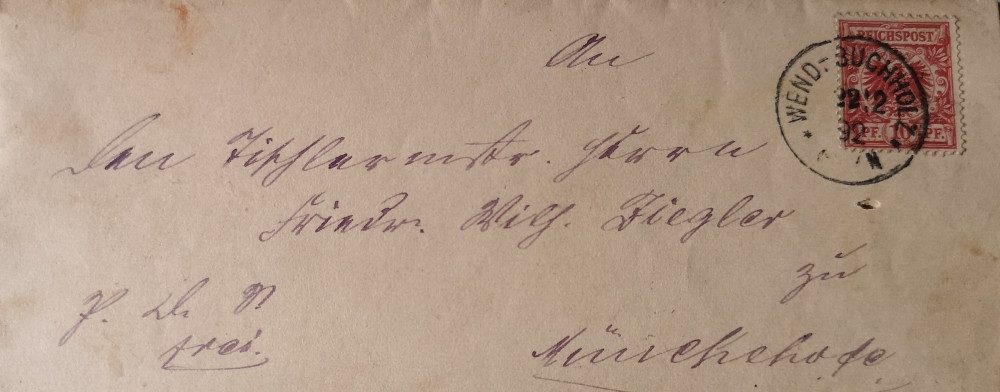 An
REICHSPOST
WEND.-BUCHHOLZ
22 12
92
PF. 10 PF.
Den Tischlermstr. Herrn
Friedr. Wilh. Ziegler
zu
frei.
Münchehofe